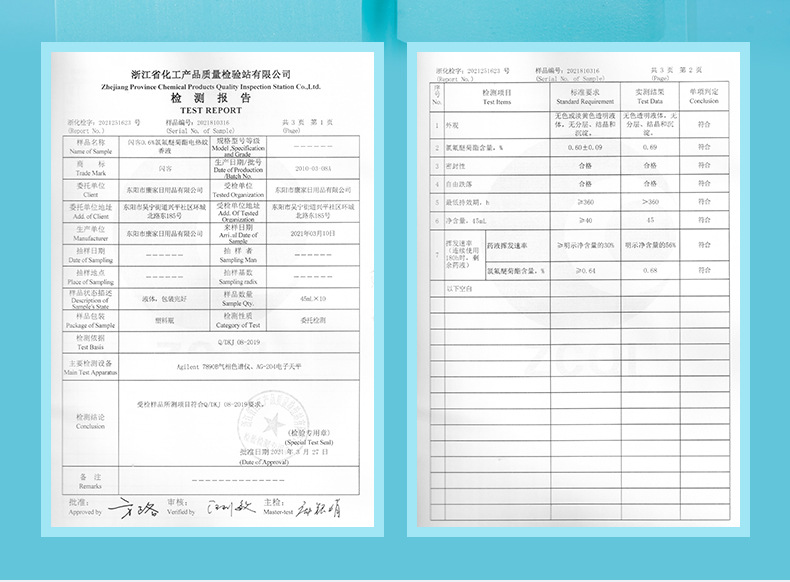 浙江省化工产品质量检验站有限公司
Zhejiang Province Chemical Products Quality Inspection Station Co.,Ltd.
检 测 报 告
TEST REPORT
浙化检字：2021251623 号 样品编号：2021810316 共 3 页 第 1 页
(Report No.) (Serial No. of Sample) (Page)
样品名称 Name of Sample 闪客0.6%氯氟醚菊酯电热蚊香液 规格型号等级 Model,Specification and Grade ------
商 标 Trade Mark 闪客 生产日期/批号 Date of Production /Batch No. 2010-03-08A
委托单位 Client 东阳市康家日用品有限公司 受检单位 Tested Organization 东阳市康家日用品有限公司
委托单位地址 Add. of Client 东阳市吴宁街道兴平社区环城北路东185号 受检单位地址 Add. Of Tested Organization 东阳市吴宁街道兴平社区环城北路东185号
生产单位 Manufacturer 东阳市康家日用品有限公司 来样日期 Arrival Date of Sample 2021年03月10日
抽样日期 Date of Sampling ------ 抽 样 者 Sampling Man ------
抽样地点 Place of Sampling ------ 抽样基数 Sampling radix ------
样品状态描述 Description of Sample's State 液体，包装完好 样品数量 Sample Qty. 45mL×10
样品包装 Package of Sample 塑料瓶 检测性质 Category of Test 委托检测
检测依据 Test Basis Q/DKJ 08-2019
主要检测设备 Main Test Apparatus Agilent 7890B气相色谱仪、AG-204电子天平
检测结论 Conclusion 受检样品所测项目符合Q/DKJ 08-2019要求。
(检验专用章)
(Special Test Seal)
批准日期 2021 年 3 月 27 日
(Date of Approval)
备 注 Remarks --------------
批准： 审核： 主检：
Approved by Verified by Master-test
浙化检字：2021251623 号 样品编号：2021810316 共 3 页 第 2 页
(Report No.) (Serial No. of Sample) (Page)
序号 No. 检测项目 Test Items 标准要求 Standard Requirement 实测结果 Test Data 单项判定 Conclusion
1 外观 无色或淡黄色透明液体，无分层、结晶和沉淀。 无色透明液体，无分层、结晶和沉淀。 符合
2 氯氟醚菊酯含量，% 0.60±0.09 0.69 符合
3 密封性 合格 合格 符合
4 自由跌落 合格 合格 符合
5 最低持效期，h ≥360 >360 符合
6 净含量，45mL ≥40 45 符合
7 挥发速率（连续使用180h时，剩余药液） 药液挥发速率 ≥明示净含量的30% 明示净含量的56% 符合
氯氟醚菊酯含量，% ≥0.64 0.68 符合
以下空白